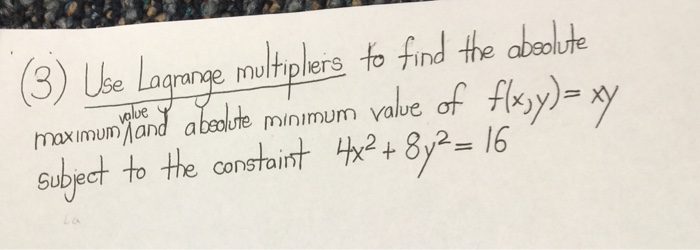 (3) Use Lagrange multipliers to find the absolute
maximum value and absolute minimum value of f(x,y)= xy
subject to the constaint 4x²+ 8y²= 16